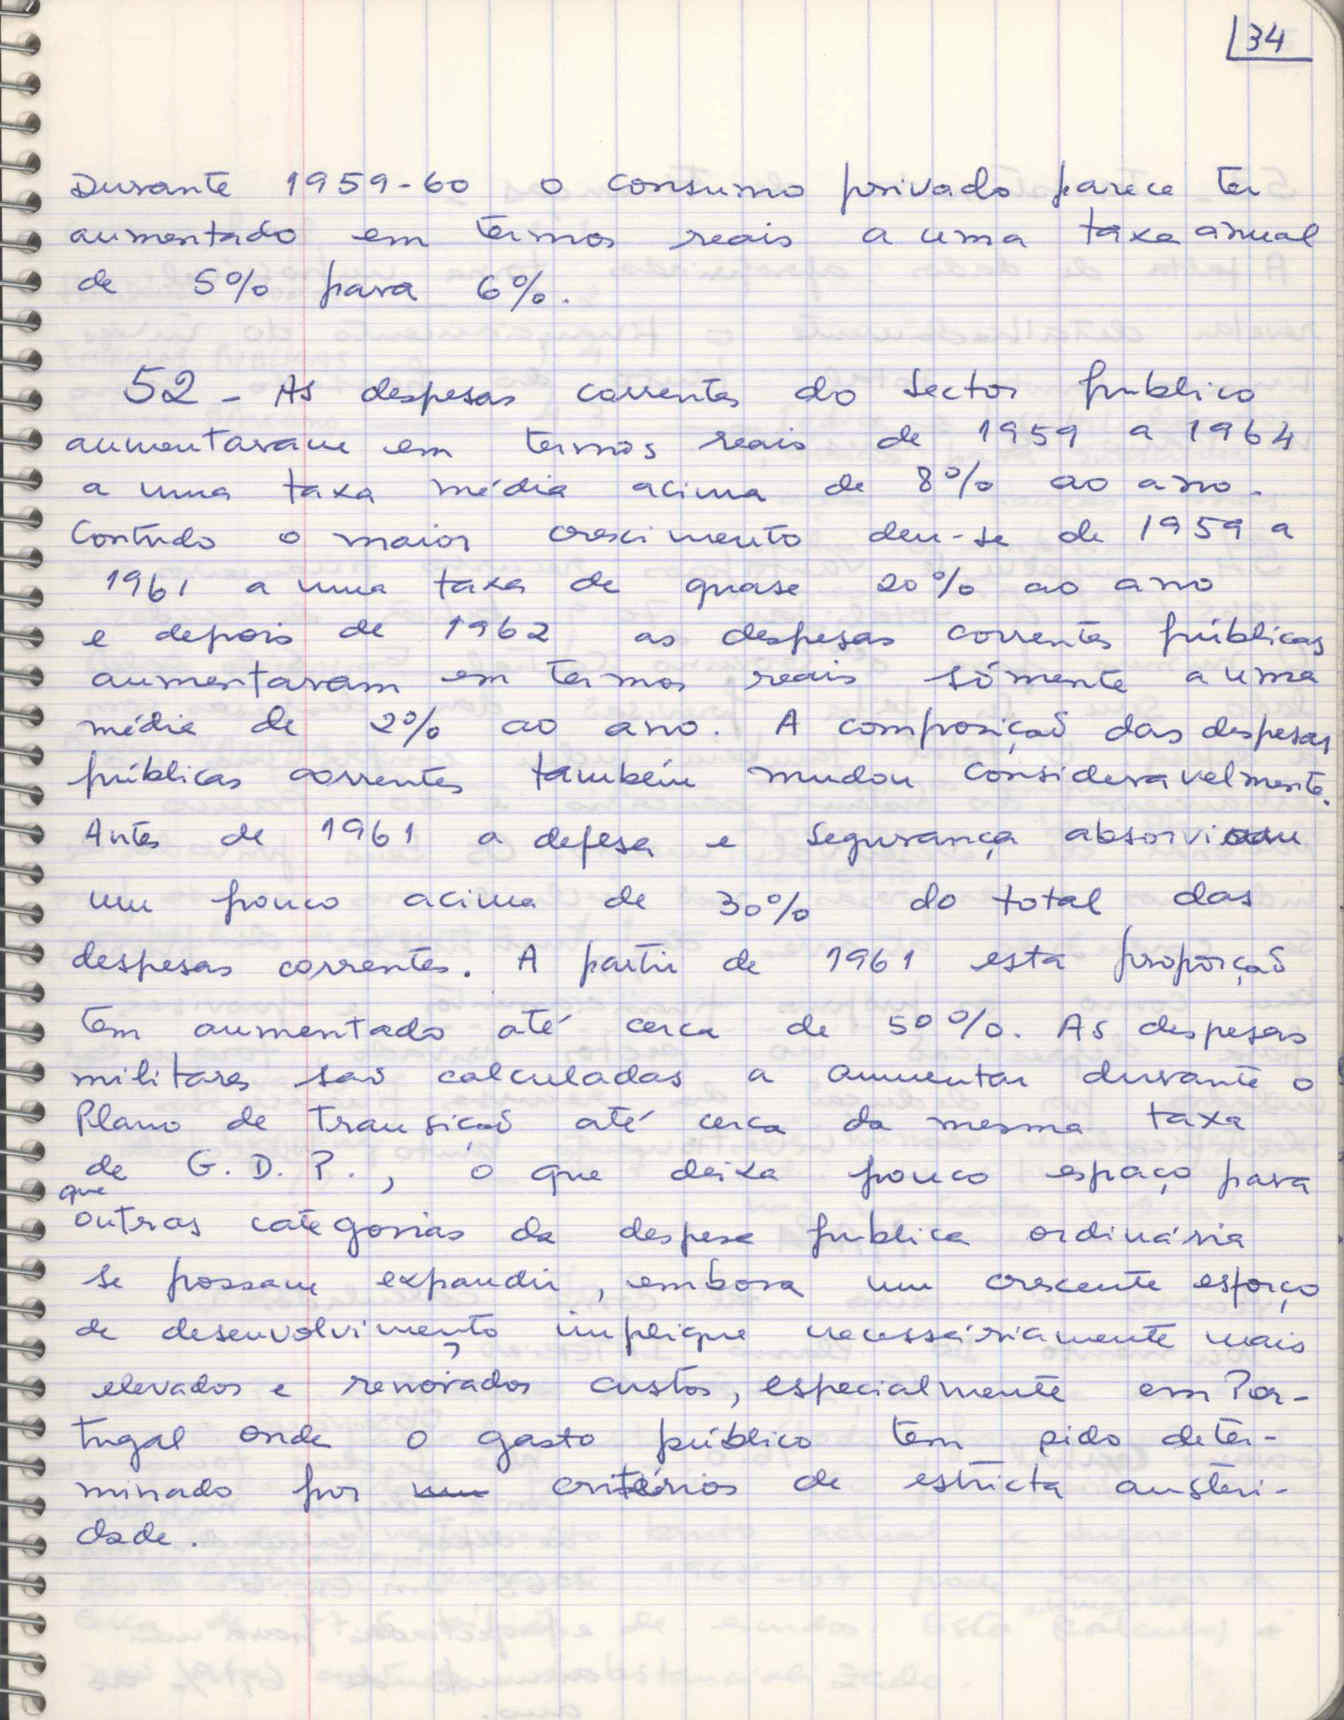 34
Durante 1959-60 o consumo privado parece ter
aumentado em termos reais a uma taxa anual
de 5% para 6%.
52 - As despesas correntes do sector publico
aumentaram em termos reais de 1959 a 1964
a uma taxa média acima de 8% ao ano.
Contudo o maior crescimento deu-se de 1959 a
1961 a uma taxa de quase 20% ao ano
e depois de 1962 as despesas correntes públicas
aumentaram em termos reais sómente a uma
média de 2% ao ano. A composição das despesas
públicas correntes também mudou consideravelmente.
Antes de 1961 a defesa e segurança absorviam
um pouco acima de 30% do total das
despesas correntes. A partir de 1961 esta proporção
tem aumentado até cerca de 50%. As despesas
militares são calculadas a aumentar durante o
Plano de Transição até cerca da mesma taxa
de G. D. P., o que deixa pouco espaço para
que
outras categorias da despesa publica ordinária
se possam expandir, embora um crescente esforço
de desenvolvimento implique necessáriamente mais
elevados e renovados custos, especialmente em Por-
tugal onde o gasto público tem sido deter-
minado por um critérios de estricta austeri-
dade.